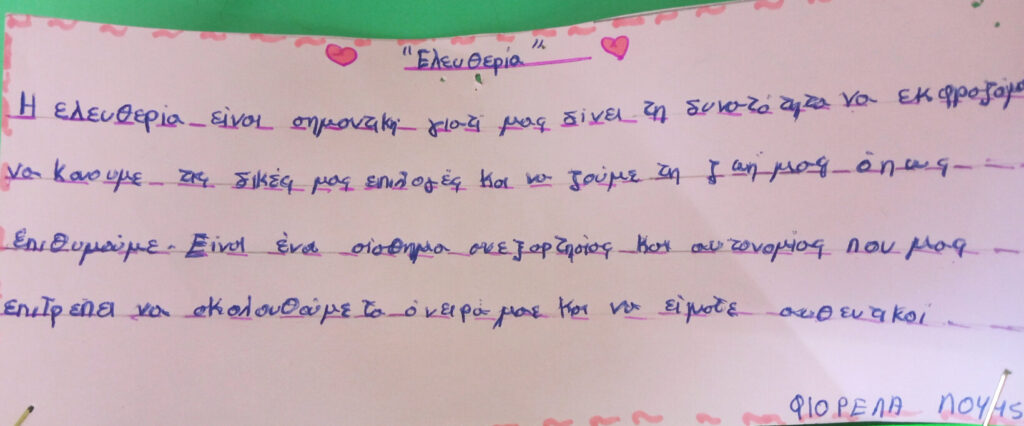 "Ελευθερία"
Η ελευθερία είναι σημαντική γιατί μας δίνει τη δυνατότητα να
να κανουμε τις δικές μας επιλογές και να ζούμε τη ζωή μας όπως
επιθυμούμε. Είναι ένα αίσθημα ανεξαρτησίας και αυτονομίας που μας
επιτρέπει να ακολουθούμε τα όνειρά μας και να είμαστε αυθεντικοί
ΦΙΟΡΕΛΑ